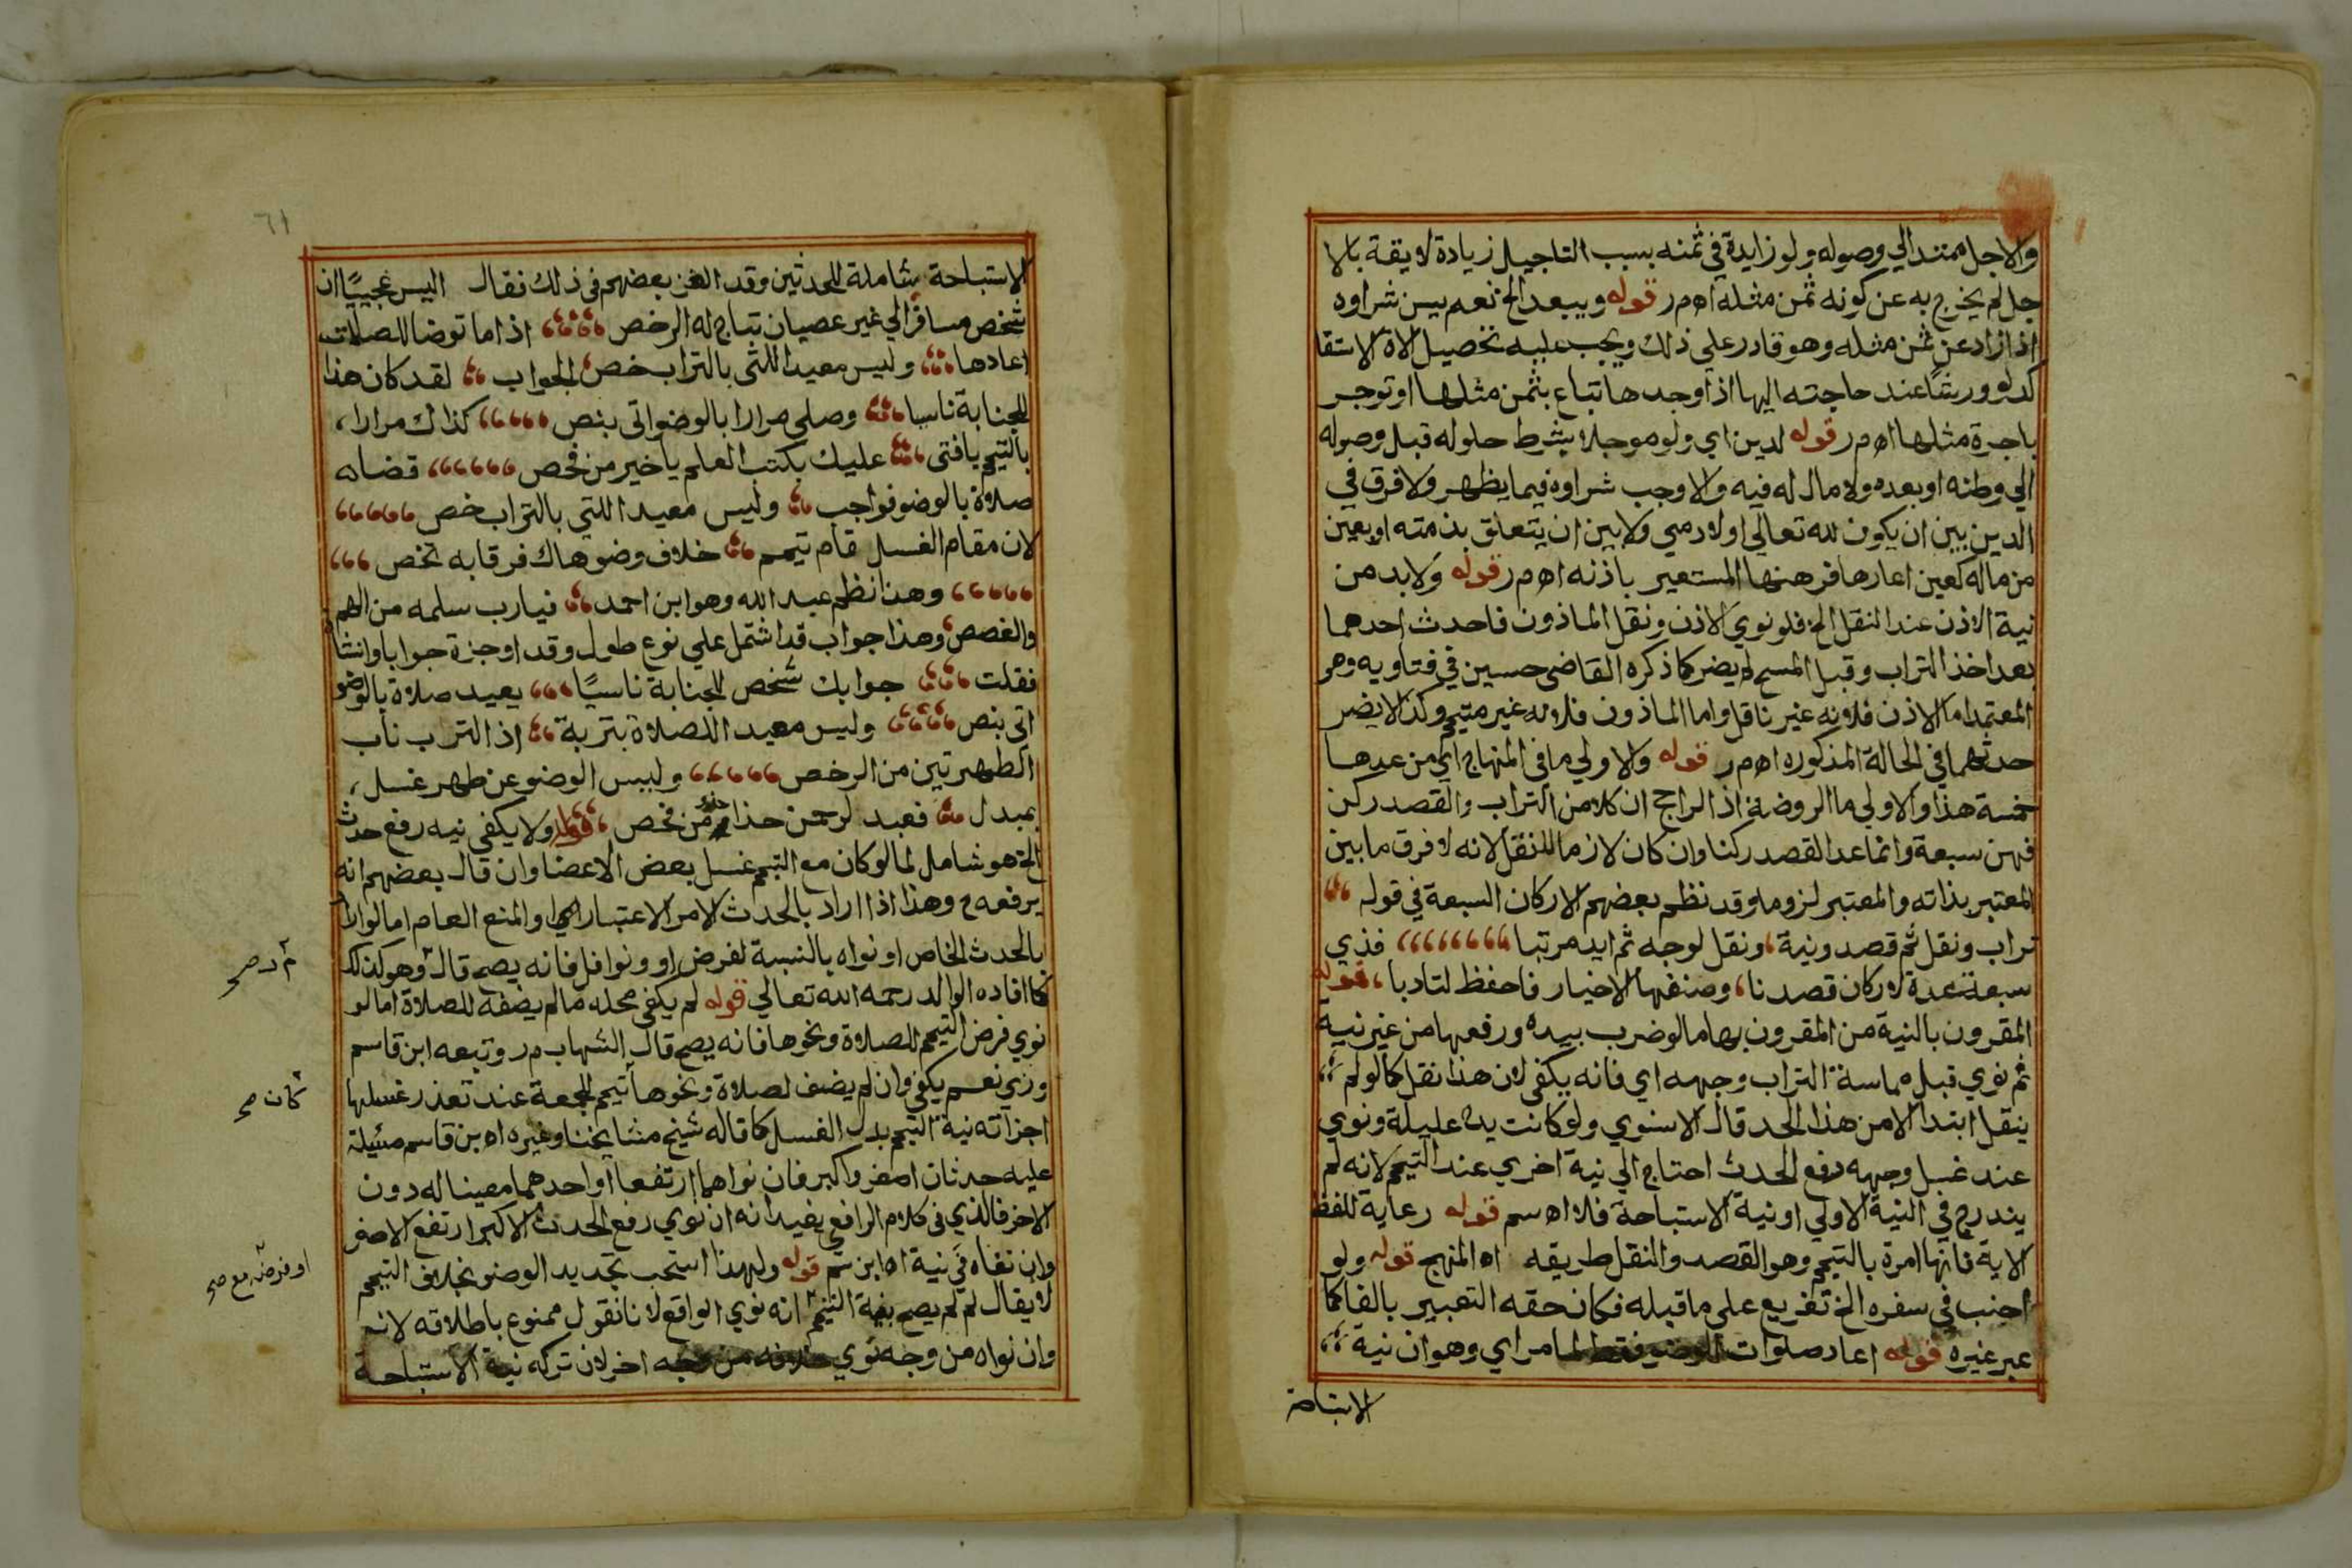 والاجل ممتد الي وصوله ولو زايدة في ثمنه بسبب التاجيل زيادة لايقة بالا
جل لم يخرج به عن كونه ثمن مثله اه م ر قوله ويبعد الخ نعم يسن شراوه
اذا زاد عن ثمن مثله وهو قادر علي ذلك ويجب عليه تحصيل الاة الاستقا
كدلو ورشا عند حاجته اليها اذا وجدها تباع بثمن مثلها او توجر
باجرة مثلها اه م ر قوله لدين اي ولو موجلا بشرط حلوله قبل وصوله
الي وطنه او بعده ولا مال له فيه والا وجب شراوه فيما يظهر ولا فرق في
الدين بين ان يكون لله تعالي او لادمي ولا بين ان يتعلق بذمته او بعين
من ماله كعين اعارها فرهنها المستعير باذنه اه م ر قوله ولا بد من
نية الاذن عند النقل الخ فلو نوي الاذن ونقل الماذون فاحدث احدهما
بعد اخذ التراب وقبل المسح لم يضر كما ذكره القاضي حسين في فتاويه وهو
المعتمد اما الاذن فلانه غير ناقل واما الماذون فلانه غير متيمم وكذا لا يضر
حدثهما في الحالة المذكوره اه م ر قوله والاولي ما في المنهاج اي من عدها
خمسة هذا والاولي ما الروضة اذ الراجح ان كلا من التراب والقصد ركن
فهن سبعة وانما عدا القصد ركنا وان كان لازما للنقل لانه لا فرق ما بين
المعتبر بذاته والمعتبر لزوما وقد نظم بعضهم الاركان السبعة في قوله
تراب ونقل ثم قصد ونية ونقل لوجه ثم ايد مرتبا فذي
سبعة عدة لاركان قصدنا وصنفها الاخيار فاحفظ لتادبا قوله
المقرون بالنية من المقرون بها ما لو ضرب بيده ورفعها من غير نية
ثم نوي قبل مماسة التراب وجهه اي فانه يكفي لان هذا نقل كما لو لم
ينقل ابتدا الا من هذا الحد قال الاسنوي ولو كانت يده عليلة ونوي
عند غسل وجهه رفع الحدث احتاج الي نية اخري عند التيمم لانه لم
يندرج في النية الاولي او نية الاستباحة فلا اه سم قوله رعاية للفظ
الاية فانها امرة بالتيمم وهو القصد والنقل طريقه اه المنهج قوله ولو
اجنب في سفره الخ تفريع علي ما قبله فكان حقه التعبير بالفا كما
عبر غيره قوله اعاد صلوات الوضو فقط لما مر اي وهو ان نية
الاستباحة
٦١
الاستباحة شاملة للحدثين وقد الغز بعضهم في ذلك فقال اليس عجيبا ان
شخص مسافرا الي غير عصيان تباح له الرخص اذا ما توضا للصلات
اعادها وليس معيدا للتي بالتراب خص الجواب لقد كان هذا
للجنابة ناسيا وصلي مرارا بالوضو اتي بنص كذاك مرارا
بالتيمم يا فتي عليك بكتب العلم يا خير من فحص قضاه
صلاة بالوضو فواجب وليس معيدا للتي بالتراب خص
لان مقام الغسل قام تيمم خلاف وضو هاك فرقا به تخص
وهذا نظم عبد الله وهو ابن احمد فيا رب سلمه من الهم
والغصص وهذا جواب قد اشتمل علي نوع طول وقد اوجزة جوابا وانشا
فقلت جوابك شخص للجنابة ناسيا يعيد صلاة بالوضو
اتي بنص وليس معيدا للصلاة بتربة اذ الترب ناب
الطهرتين من الرخص وليس الوضو عن طهر غسل
بمبدل فعبد لرحمن حذا من فحص قوله ولا يكفي نيه رفع حدث
الخ هو شامل لما لو كان مع التيمم غسل بعض الاعضا وان قال بعضهم انه
يرفعه ح وهذا اذا اراد بالحدث الامر الاعتباري او المنع العام اما لو اراد
بالحدث الخاص او نواه بالنسبة لفرض او ونوافل فانه يصح قال وهو كذلك
كما افاده الوالد رحمه الله تعالي قوله لم يكفي محله ما لم يضفه للصلاة اما لو
نوي فرض التيمم للصلاة ونحوها فانه يصح قال الشهاب م ر وتبعه ابن قاسم
وزي نعم يكفي وان لم يضف لصلاة ونحوها تيمم للجمعة عند تعذر غسلها
اجزاته نية التيمم بدل الغسل كما قاله شيخ مشايخنا وغيره اه بن قاسم مسئلة
عليه حدثان اصغر واكبر فان نواهما ارتفعا او احدهما معينا له دون
الاخر فالذي في كلام الرافعي يفيد انه ان نوي رفع الحدث الاكبر ارتفع الاصغر
وان نفاه في نية اه ابن سم قوله ولهذا استحب تجديد الوضو بخلاف التيمم
لا يقال لم لم يصح بنية التيمم انه نوي الواقع لانا نقول ممنوع باطلاقه لانه
وان نواه من وجه نوي خلافه من وجه اخر لان تركه نية الاستباحة
م ر صح
كان صح
او فرضه مع صح